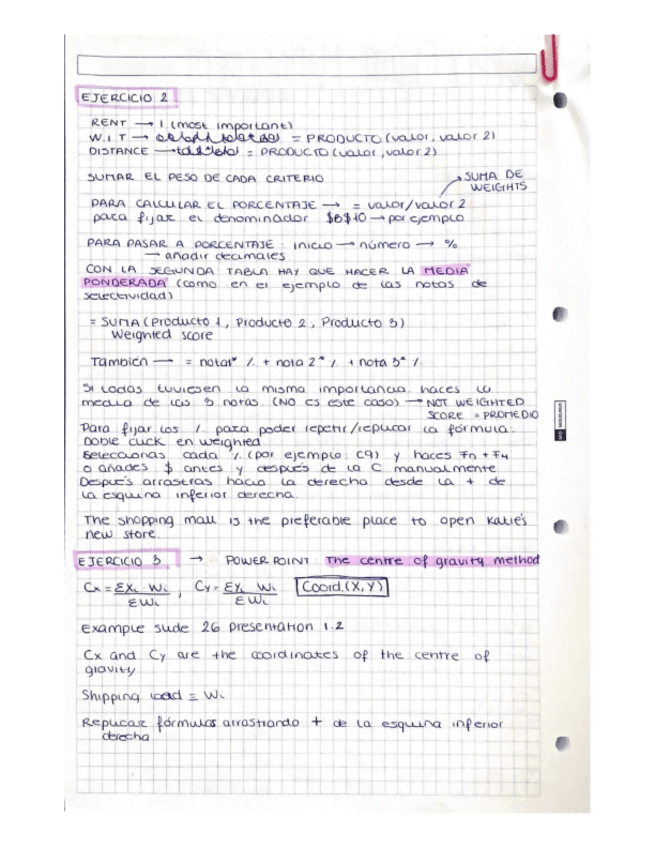 EJERCICIO 2
RENT → 1 (most important)
W.I.T → = PRODUCTO (valor, valor 2)
DISTANCE → = PRODUCTO (valor, valor 2)
SUMAR EL PESO DE CADA CRITERIO
SUMA DE WEIGHTS
PARA CALCULAR EL PORCENTAJE → = valor/valor 2
para fijar el denominador $B$10 → por ejemplo
PARA PASAR A PORCENTAJE : inicio → número → %
→ añadir decimales
CON LA SEGUNDA TABLA HAY QUE HACER LA MEDIA
PONDERADA (como en el ejemplo de las notas de
selectividad)
= SUMA (Producto 1, Producto 2, Producto 3)
Weighted score
También → = nota1* % + nota 2* % + nota 3* %
Si todas tuviesen la misma importancia haces la
media de las 3 notas. (NO es este caso) → NOT WEIGHTED
SCORE = PROMEDIO
Para fijar los % para poder repetir/replicar la fórmula.
Doble click en weighted.
Seleccionas cada % (por ejemplo: C9) y haces Fn + F4
o añades $ antes y después de la C manualmente
Después arrastras hacia la derecha desde la + de
la esquina inferior derecha.
The shopping mall is the preferable place to open Katie's
new store.
EJERCICIO 3 → POWERPOINT : The centre of gravity method
Cx = ΣXi Wi / ΣWi , Cy = ΣYi Wi / ΣWi Coord.(X,Y)
Example slide 26 Presentation 1.2
Cx and Cy are the coordinates of the centre of
gravity
Shipping load = Wi
Replicar fórmulas arrastrando + de la esquina inferior
derecha